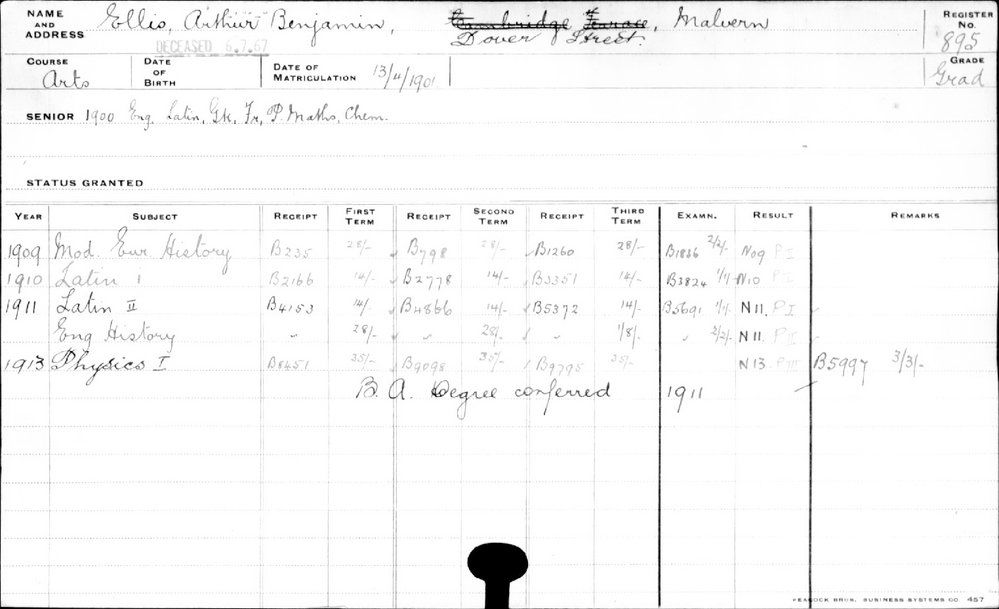 NAME AND ADDRESS Ellis, Arthur Benjamin, Cambridge Terrace, Malvern REGISTER No. 895
DECEASED 6.7.67 Dover Street.
COURSE Arts DATE OF BIRTH DATE OF MATRICULATION 13/4/1901 GRADE Grad
SENIOR 1900 Eng, Latin, Gk, Fr, P. Maths, Chem.
STATUS GRANTED
YEAR SUBJECT RECEIPT FIRST TERM RECEIPT SECOND TERM RECEIPT THIRD TERM EXAMN. RESULT REMARKS
1909 Mod. Eur History B235 28/- B798 28/- B1260 28/- B1836 2/2/- N09 PI
1910 Latin I B2166 14/- B2778 14/- B3351 14/- B3824 1/1/- N10 PII
1911 Latin II B4153 14/- B4866 14/- B5372 14/- B5691 1/1/- N11. PI
Eng History " 28/- " 28/- " 1/8/- " 2/2/- N11. PII
1913 Physics I B8451 35/- B9098 35/- B9795 35/- N13. PIII B5997 3/3/-
B. A. Degree conferred 1911
PEACOCK BROS. BUSINESS SYSTEMS CO. 457